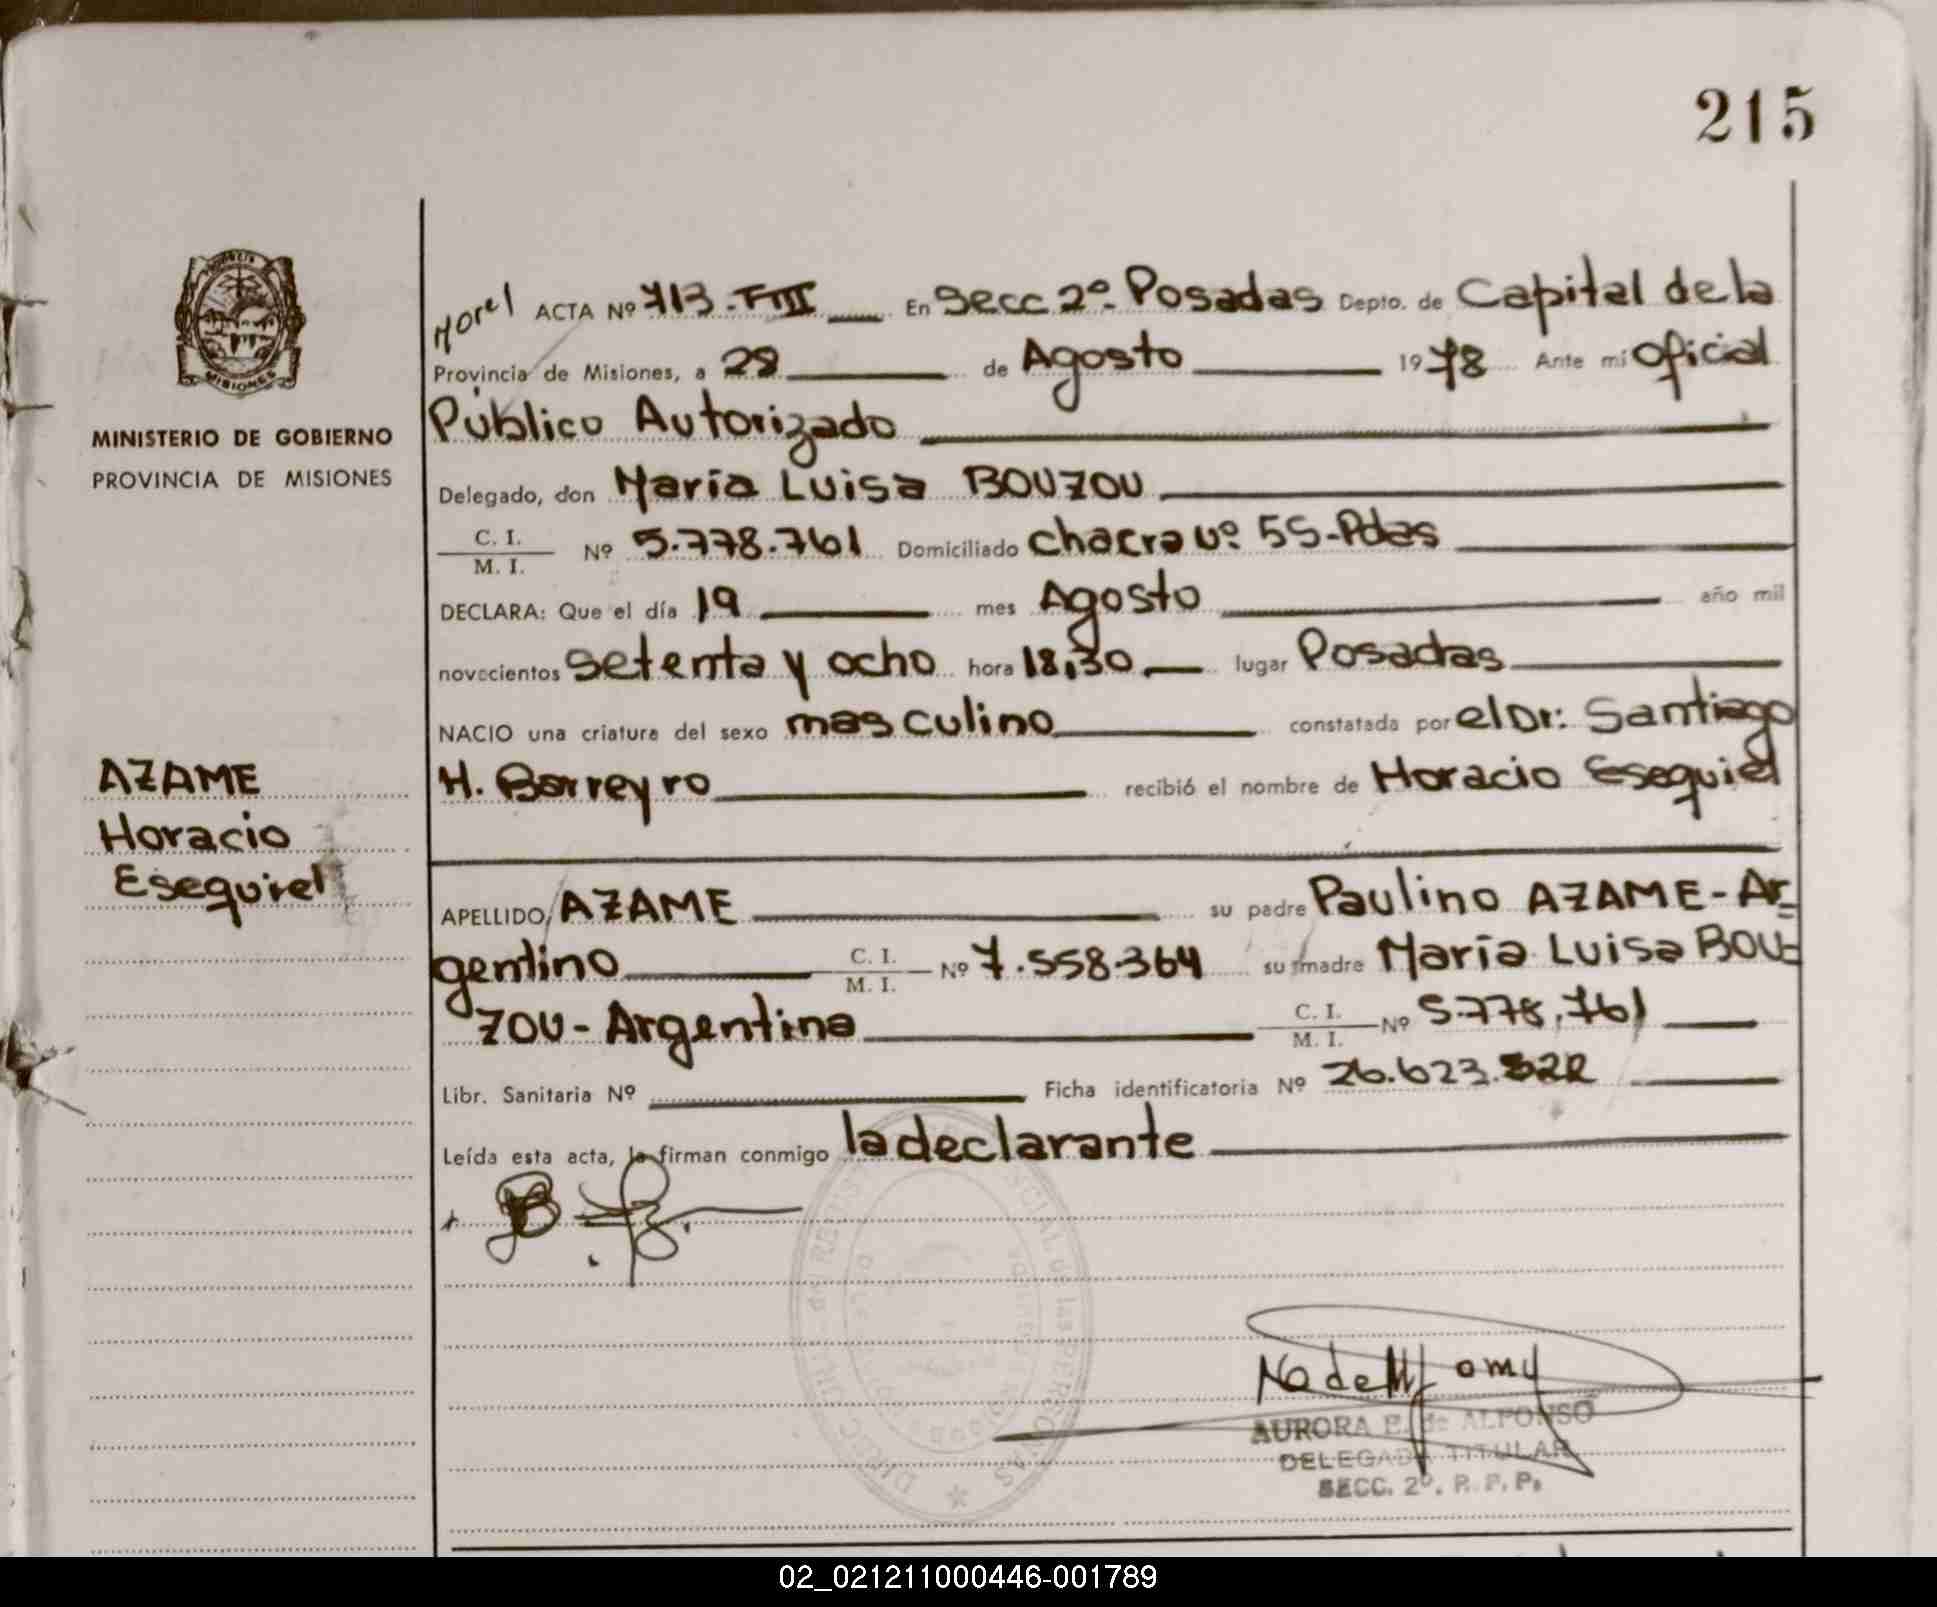 215
PROVINCIA DE MISIONES
MINISTERIO DE GOBIERNO
PROVINCIA DE MISIONES
AZAME
Horacio
Esequiel
Morel ACTA Nº 713-TIII En Secc 2º Posadas Depto. de Capital de la
Provincia de Misiones, a 29 de Agosto 1978 Ante mi Oficial
Público Autorizado
Delegado, don María Luisa BOUZOU
C. I. / M. I. Nº 5.778.761 Domiciliado Chacra Nº 55-Pdas
DECLARA: Que el día 19 mes Agosto año mil
novecientos setenta y ocho hora 18,30 lugar Posadas
NACIO una criatura del sexo masculino constatada por el Dr: Santiago
H. Barreyro recibió el nombre de Horacio Esequiel
APELLIDO, AZAME su padre Paulino AZAME-Ar=
gentino C. I. / M. I. Nº 7.558.364 su madre María Luisa BOU=
ZOU-Argentina C. I. / M. I. Nº 5.778.761
Libr. Sanitaria Nº Ficha identificatoria Nº 26.623.522
Leída esta acta, la firman conmigo la declarante
AURORA E. de ALFONSO
DELEGADA TITULAR
SECC. 2º. R. P. P.
02_021211000446-001789